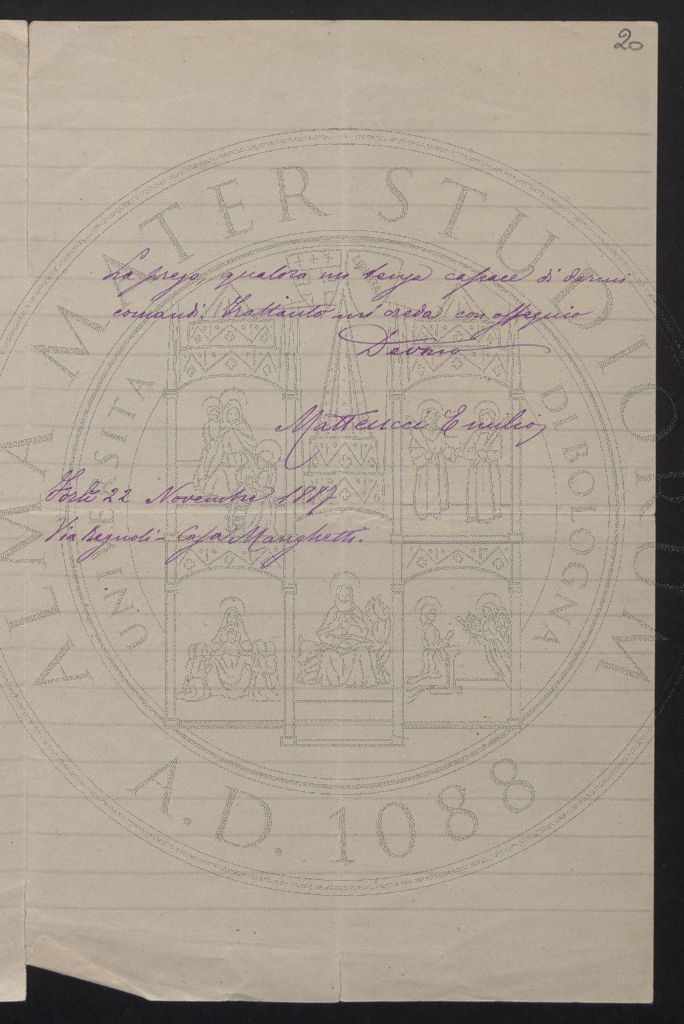 20
La prego, qualora mi tenga capace di darmi
comandi. Frattanto mi creda con ossequio
Devmo
Matteucci Emilio
Forlì 22 Novembre 1887
Via Regnoli - Casa Manghetti.
ALMA MATER STUDIORUM
UNIVERSITA DI BOLOGNA
A.D. 1088